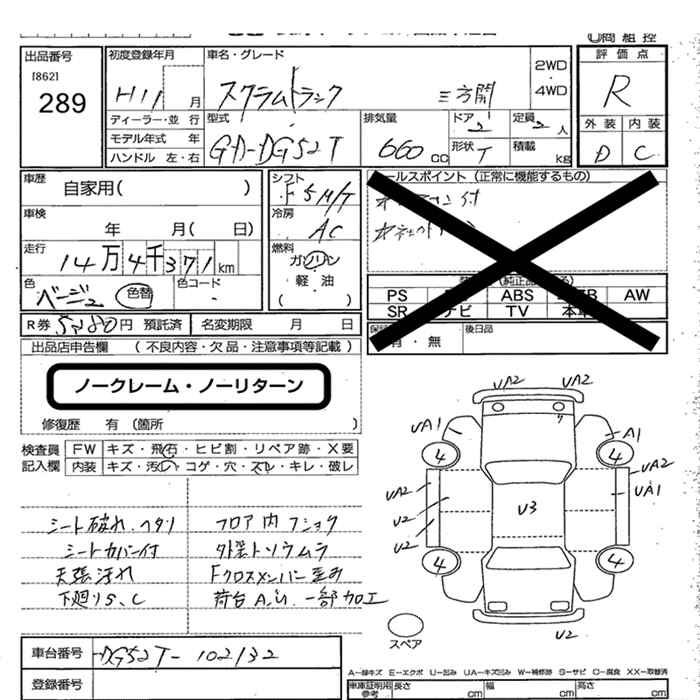 出品番号
[862]
289
初度登録年月
H11 月
車名・グレード
スクラムトラック 三方開
2WD
4WD
評価点
R
ディーラー・並 行
モデル年式 年
ハンドル 左・右
型式
GD-DG52T
排気量
660 cc
ドア
2
定員
2 人
形状
T
積載
kg
外装 内装
D C
車歴
自家用( )
シフト
F5M/T
セールスポイント (正常に機能するもの)
車検
年 月( 日)
冷房
AC
走行
14万4千371km
燃料
ガソリン
軽・油
( )
色
ベージュ
色替
色コード
-
PS ABS AW
SR ナビ TV
R券 5280円 預託済
名変期限 月 日
有・無
後日品
出品店申告欄 (不良内容・欠品・注意事項等記載)
ノークレーム・ノーリターン
修復歴 有 (箇所 )
検査員
記入欄
FW キズ・飛石・ヒビ割・リペア跡・X要
内装 キズ・汚れ・コゲ・穴・スレ・キレ・破レ
シート破れ、ヘタリ フロア内フショク
シートカバー付 外装トソウムラ
天張汚れ Fクロスメンバー歪み
下廻りS、C 荷台A、U、一部加工
UA2 UA2
UA1 A1
4 4
UA2 UA2
UA1
U2 U3
U2
4 4
U2
スペア
車台番号 DG52T-102132
登録番号
A―線キズ E―エクボ U―凹み UA―キズ凹み W―補修跡 S―サビ C―腐食 XX―交換済
車庫証明用
参考
長さ cm
幅 cm
高さ cm